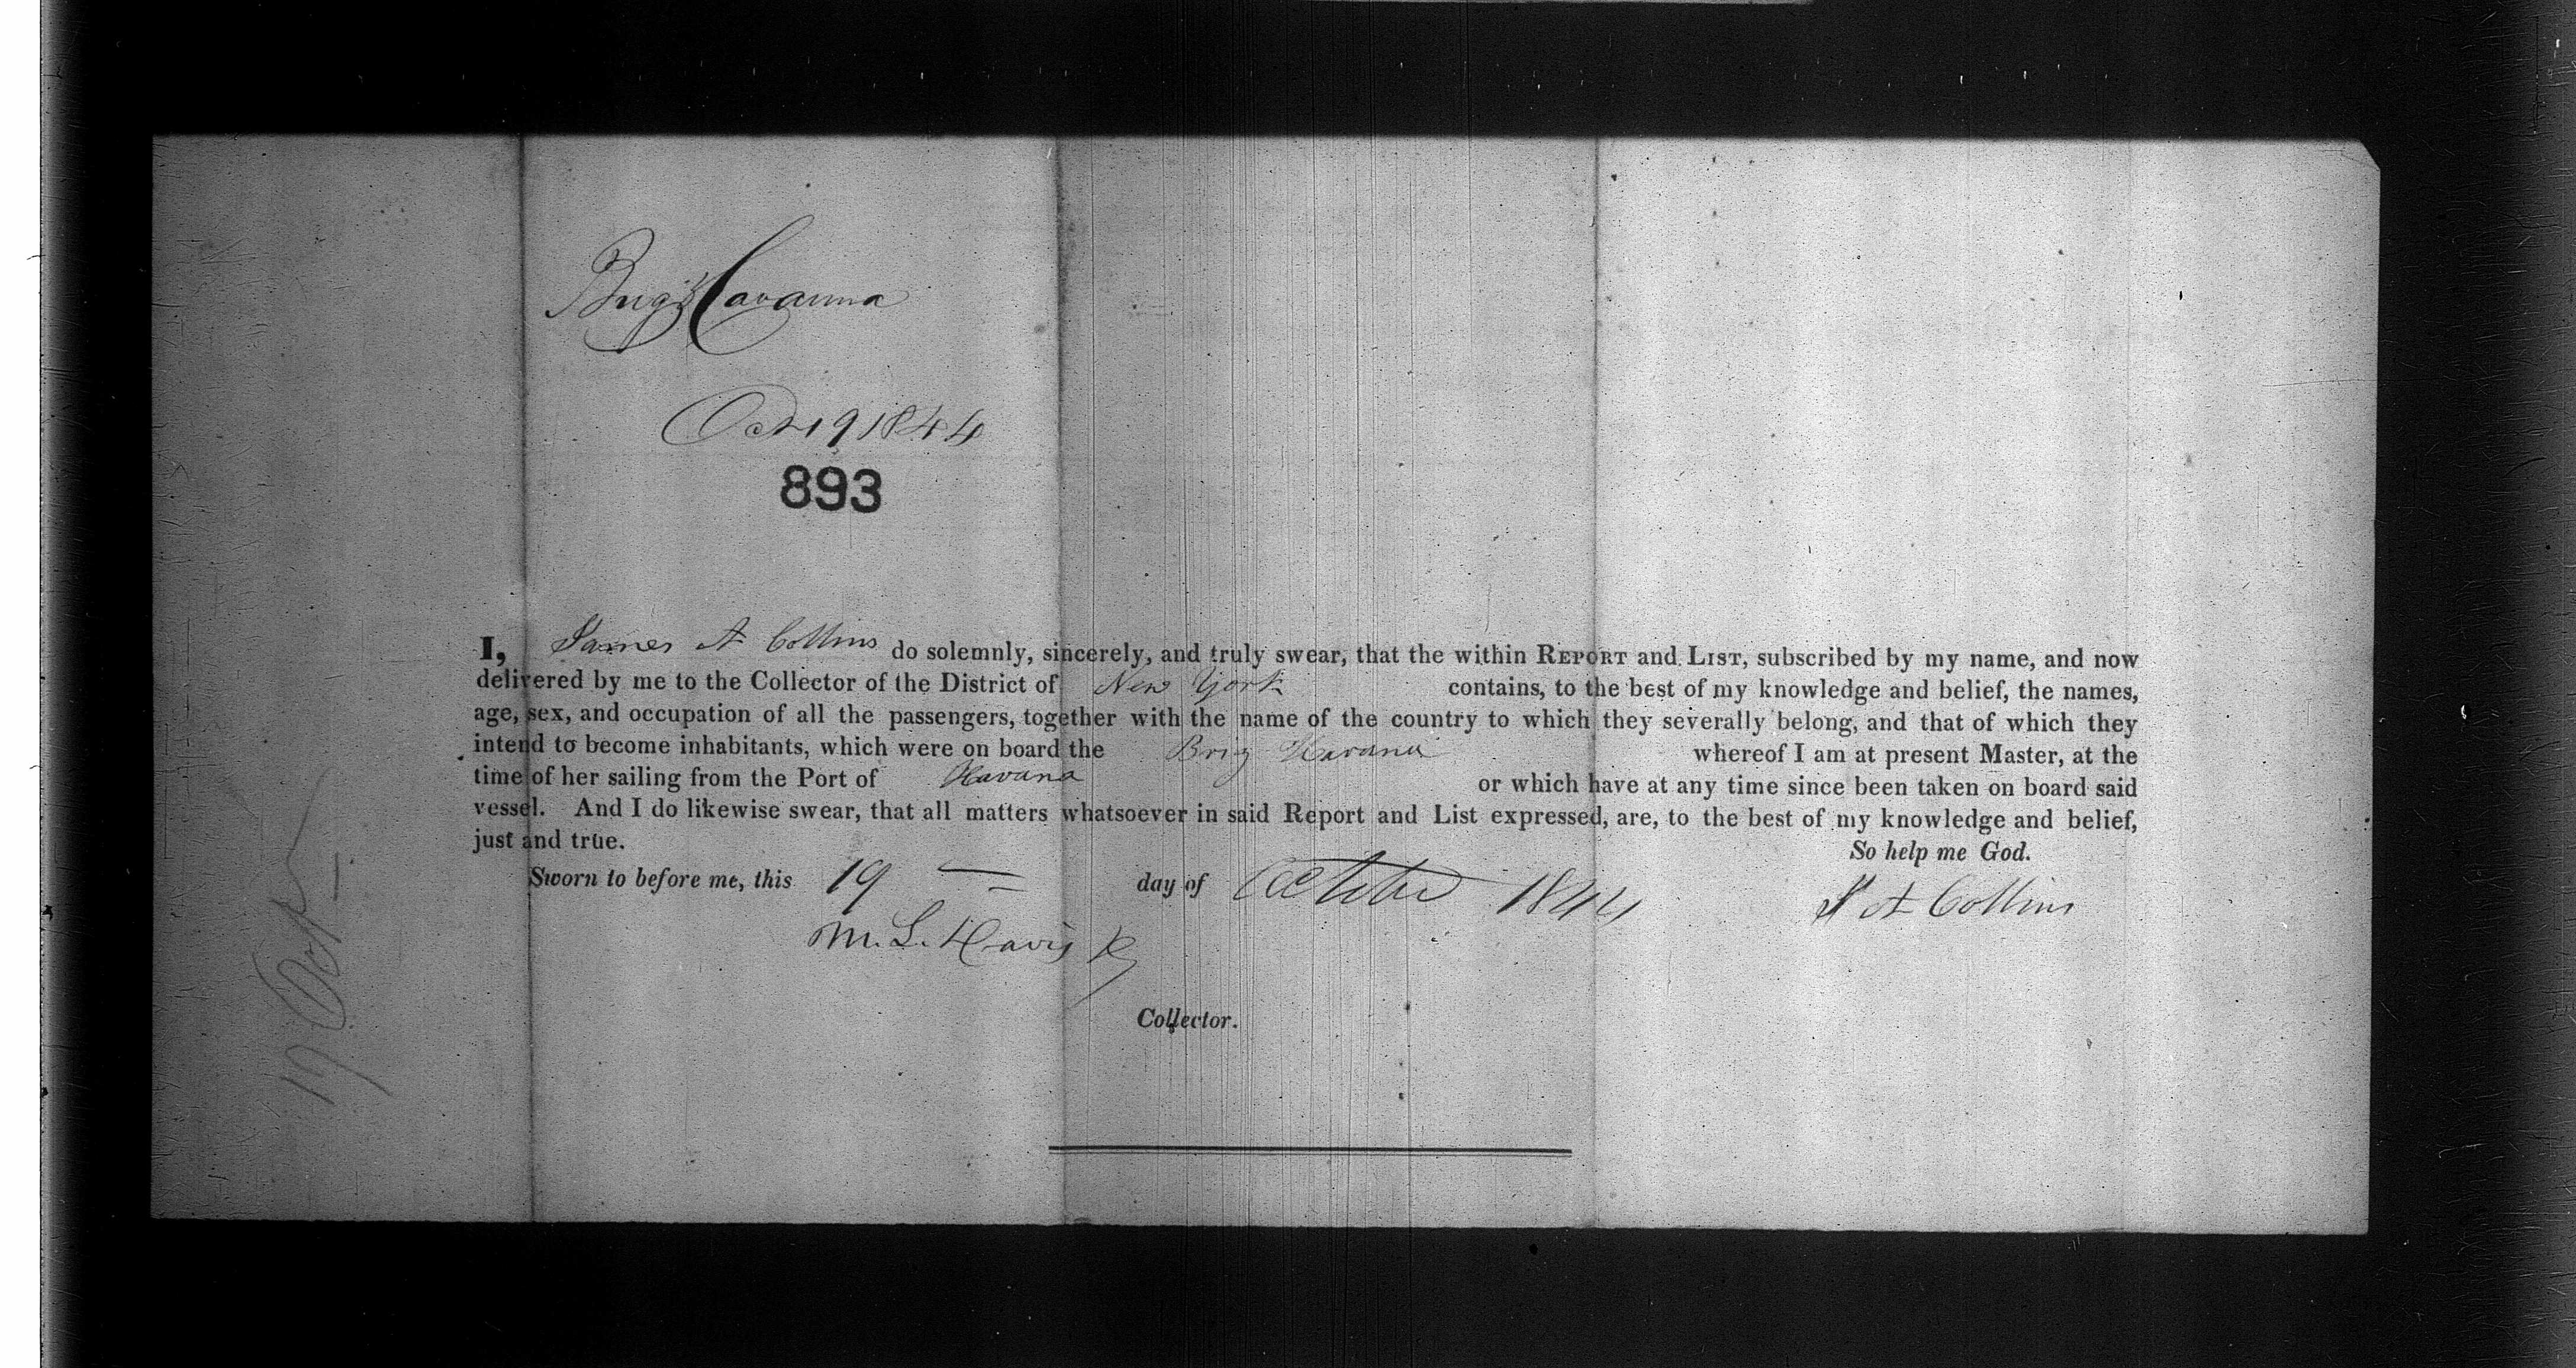 Brig Havanna
Oct 19 1844
893
I, James A Collins do solemnly, sincerely, and truly swear, that the within REPORT and LIST, subscribed by my name, and now
delivered by me to the Collector of the District of New York contains, to the best of my knowledge and belief, the names,
age, sex, and occupation of all the passengers, together with the name of the country to which they severally belong, and that of which they
intend to become inhabitants, which were on board the Brig Havana whereof I am at present Master, at the
time of her sailing from the Port of Havana or which have at any time since been taken on board said
vessel. And I do likewise swear, that all matters whatsoever in said Report and List expressed, are, to the best of my knowledge and belief,
just and true.
So help me God.
Sworn to before me, this 19 day of October 1844
J A Collins
M. L. Davis
Collector.
19 Oct